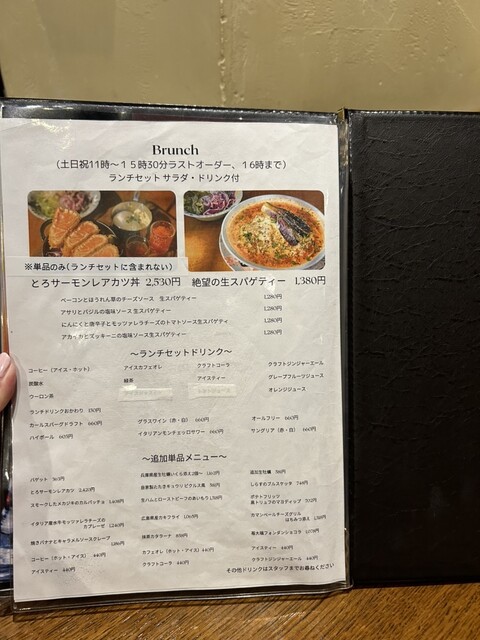 Brunch
（土日祝11時～１５時30分ラストオーダー、１６時まで）
ランチセット サラダ・ドリンク付
※単品のみ（ランチセットに含まれない）
とろサーモンレアカツ丼 2,530円 絶望の生スパゲティー 1,380円
ベーコンとほうれん草のチーズソース 生スパゲティー 1,280円
アサリとバジルの塩味ソース 生スパゲティー 1,280円
にんにくと唐辛子とモッツァレラチーズのトマトソース生スパゲティ 1,280円
アカイカとズッキーニの塩味ソース生スパゲティー 1,280円
～ランチセットドリンク～
コーヒー（アイス・ホット） アイスカフェオレ クラフトコーラ クラフトジンジャーエール
炭酸水 緑茶 アイスティー グレープフルーツジュース
ウーロン茶 オレンジジュース
ランチドリンクおかわり 110円
カールスバーグドラフト 660円 グラスワイン（赤・白） 660円 オールフリー 660円
ハイボール 605円 イタリアンモンテェッロサワー 660円 サングリア（赤・白） 660円
～追加単品メニュー～
バゲット 兵庫県産生牡蠣いくら添え2個～ 追加生牡蠣
とろサーモンレアカツ 2,420円 自家製たたきキュウリ ピクルス風 しらすのブルスケッタ 748円
スモークしたメカジキのカルパッチョ 1,408円 生ハムとローストビーフのあいもり ポテトフリット
黒トリュフのマヨディップ
イタリア産水牛モッツァレラチーズの
カプレーゼ 広島県産カキフライ カマンベールチーズグリル
はちみつ添え
焼きバナナとキャラメルソースクレープ 抹茶カタラーナ 竜大福フォンダンショコラ
コーヒー（ホット・アイス） 440円 カフェオレ（ホット・アイス） 440円 アイスティー 440円
アイスティー 440円 クラフトコーラ 440円 クラフトジンジャーエール 440円
その他ドリンクはスタッフまでお尋ねください